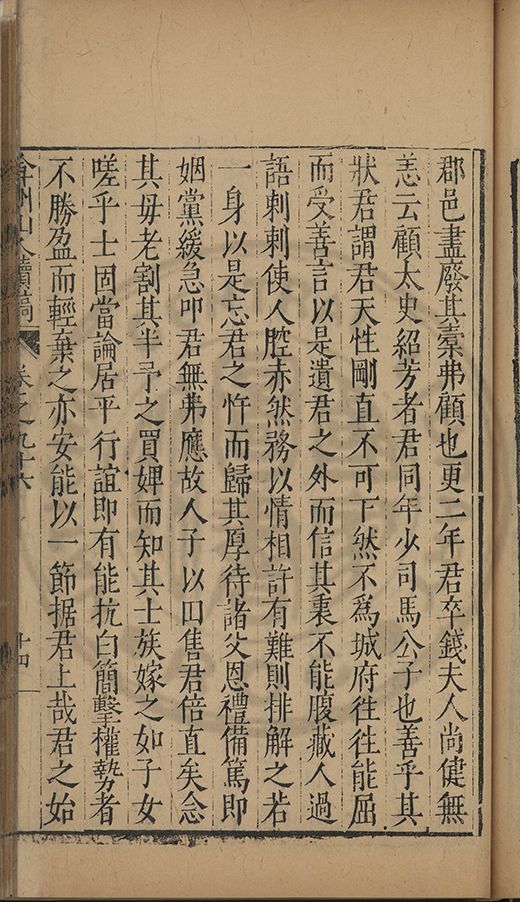 郡邑盡廢其橐弗顧也更二年君卒錢夫人尚健無
恙云顧太史紹芳者君同年少司馬公子也善乎其
狀君謂君天性剛直不可下然不爲城府往往能屈
而受善言以是遺君之外而信其衷不能腹藏人過
語剌剌使人腔赤然務以情相許有難則排解之若
一身以是忘君之忤而歸其厚待諸父恩禮備篤即
姻黨緩急叩君無弗應故人子以田售君倍直矣念
其毋老割其半予之買婢而知其士族嫁之如子女
嗟乎士固當論居平行誼即有能抗白簡擊權勢者
不勝盈而輕棄之亦安能以一節据君上哉君之始
弇州山人續稿
卷之九十六
十四